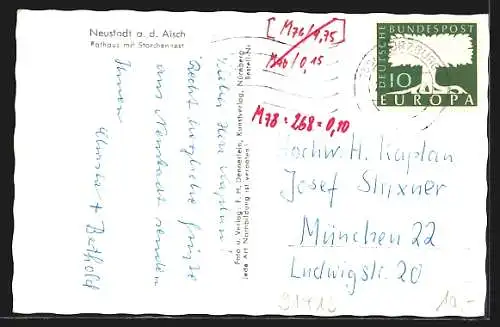 Neustadt a. d. Aisch
Rathaus mit Storchennest
Lieber Herr Kaplan
Recht herzliche Grüße
aus Neustadt senden
Ihnen
+ Berthold
Foto u. Verlag: F. H. Dennerlein, Kunstverlag, Nürnberg
Bestell-Nr.
Jede Art Nachbildung ist verboten!
[M76/4,75]
M46/0,15
M78=268=0,10
DEUTSCHE BUNDESPOST
10
EUROPA
Hochw. H. Kaplan
Josef Stixner
München 22
Ludwigstr. 20
10.-